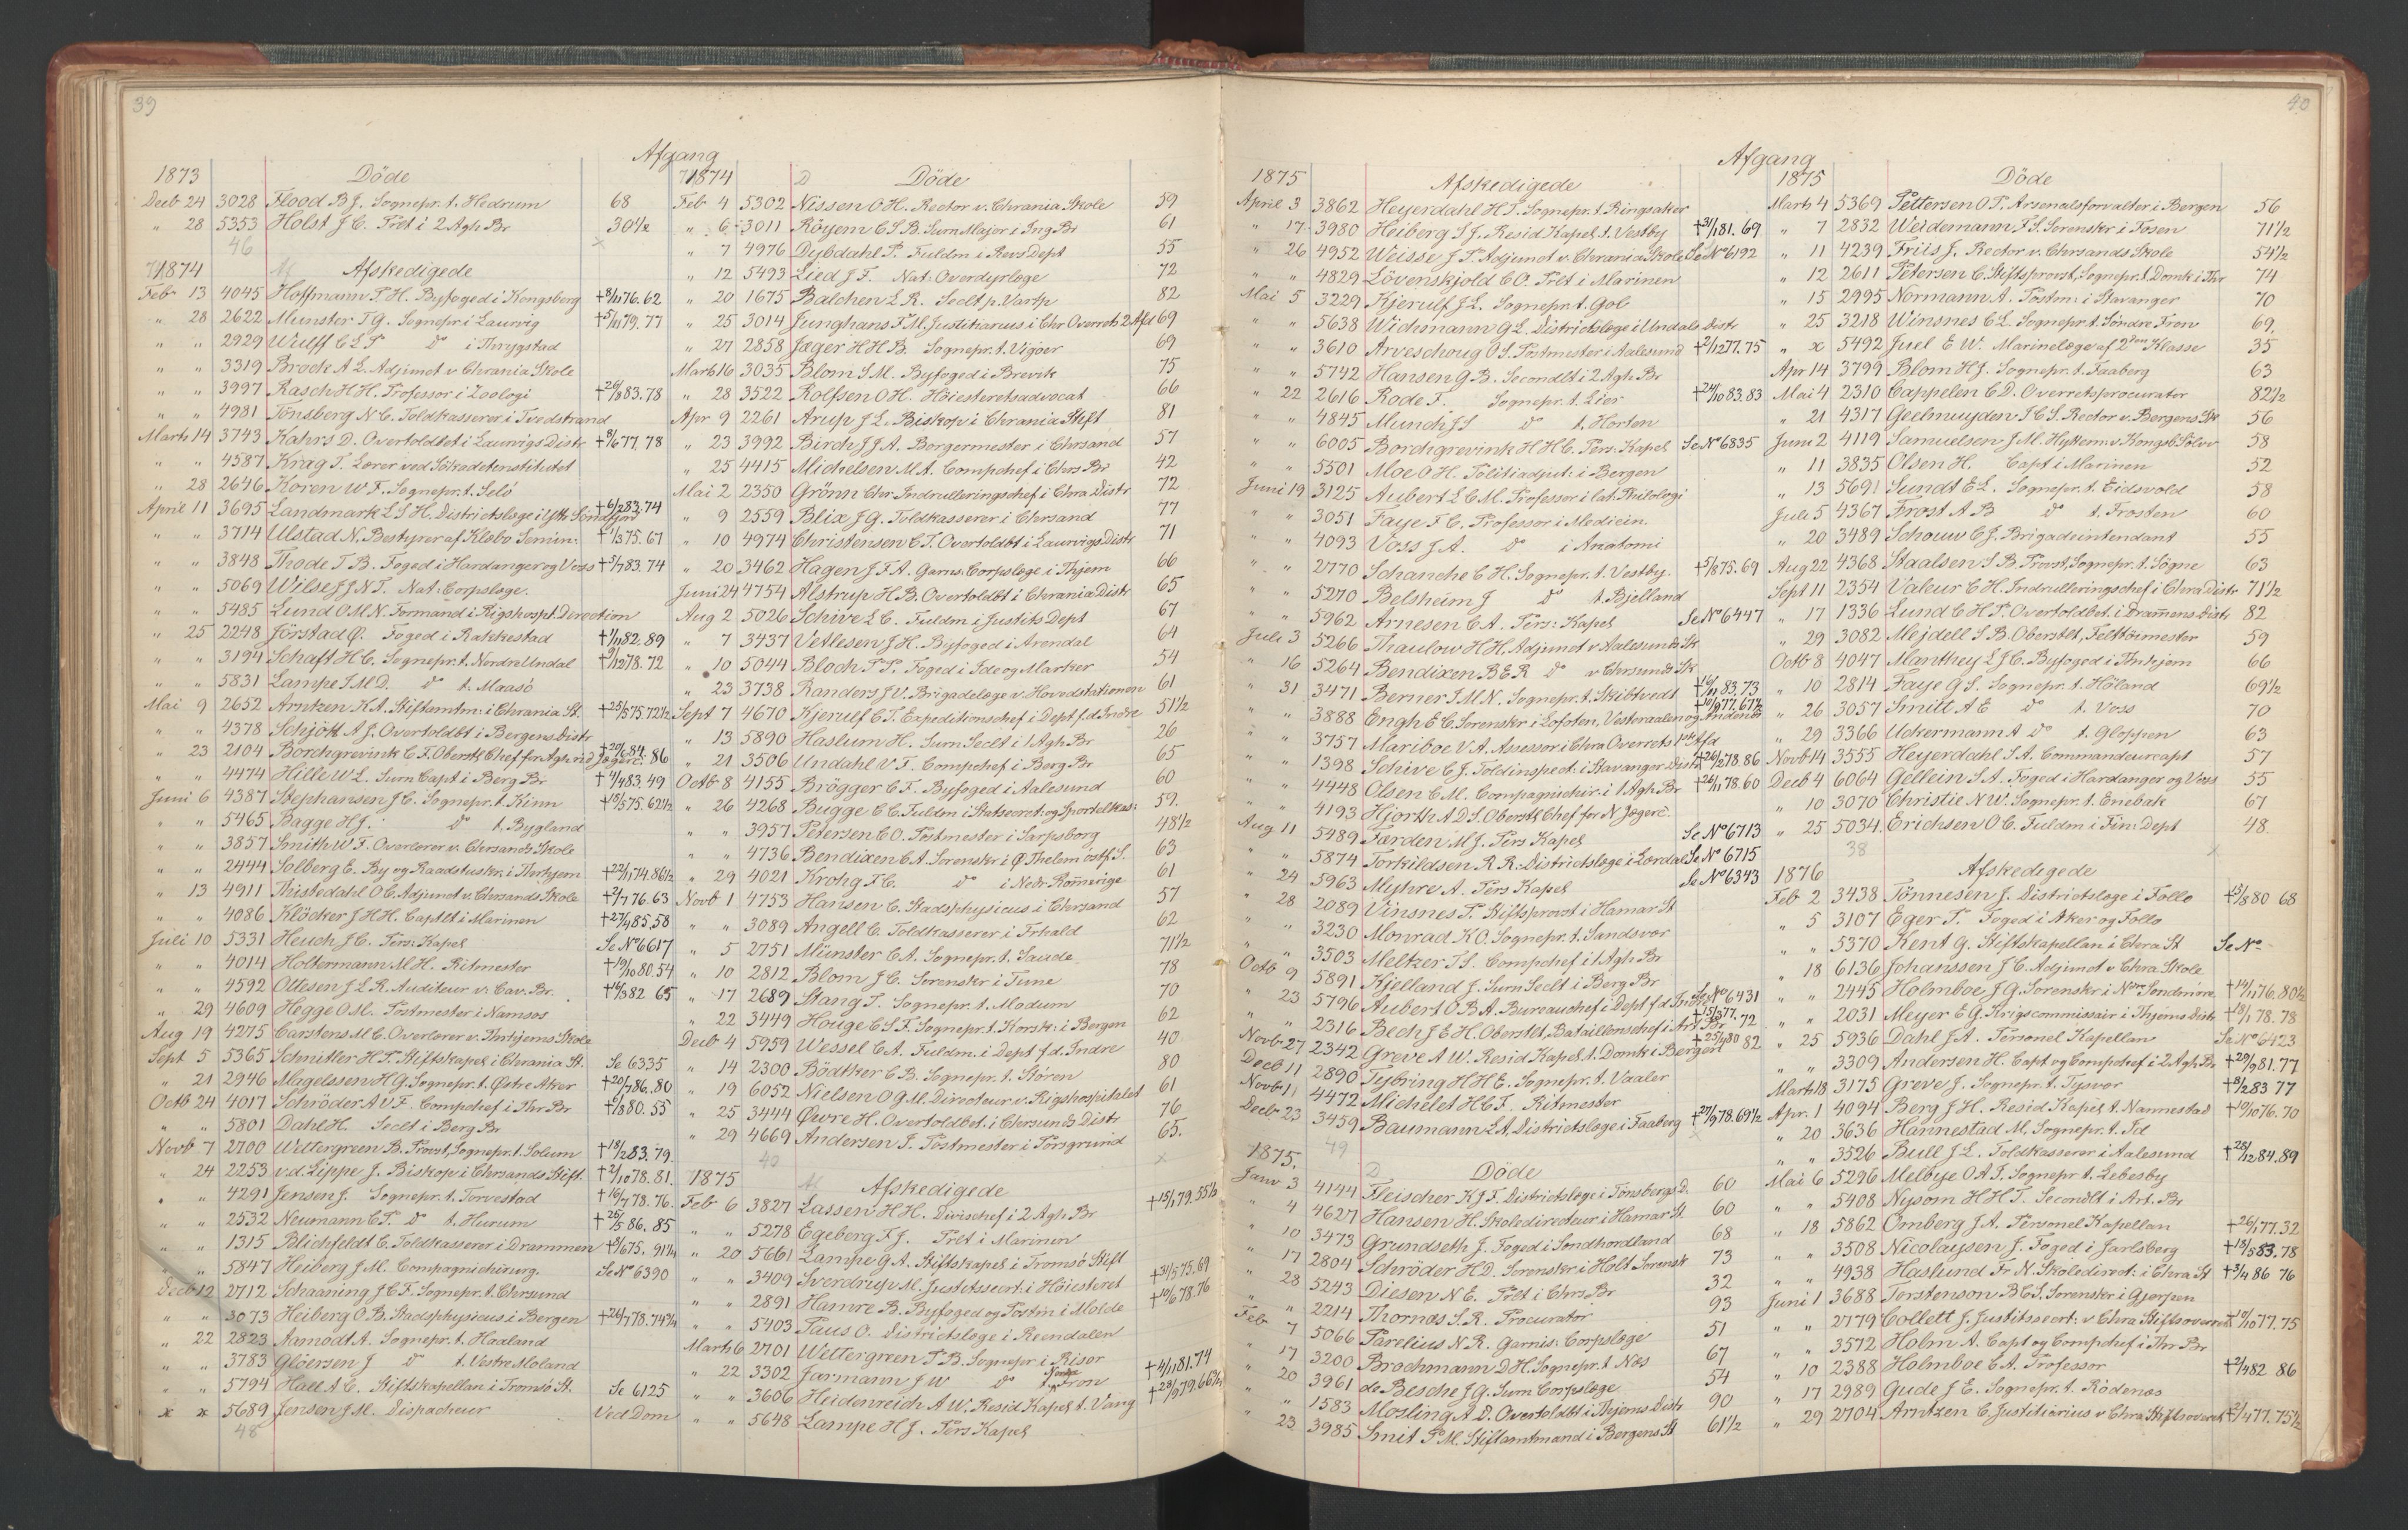 39
Afgang
1873 Döde
Decb 24 3028 Flood B J. Sognepr. t. Hedrum 68
" 28 5353 Holst J C. Prlt i 2 Agh Br 30½
46
1874 Afskedigede
Feb 13 4045 Hoffmann P. H. Byfoged i Kongsberg †8/11 76. 62
" 28 2622 Munster T G. Sognepr i Laurvig †5/11 79. 77
" " 2929 Wulff C L P do i Thrygstad
" " 3319 Brock A L. Adjunct v Chrania Skole
" " 3997 Rasch H H. Professor i Zoologi †26/8 83. 78
" " 4981 Tönsberg N C. Toldkasserer i Tvedstrand
Marts 14 3743 Kahrs D. Overtoldbet i Laurvigs Distr †8/6 77. 78
" " 4587 Krag P. Lærer ved Sökadetinstitutet
" 28 2646 Koren W F. Sognepr. t. Selö
April 11 3695 Landmark L S H. Districtslæge i Yttr Söndfjord †6/2 83. 74
" " 3714 Ulstad N. Bestyrer af Klæbo Semin: †1/3 75. 67
" " 3848 Thode T B. Foged i Hardanger og Voss †5/7 83. 74
" " 5069 Wilse J J N T. Nat: Corpslæge.
" " 5485 Lund O M N. Formand i Rigshospt. Direction
" 25 2248 Jörstad O. Foged i Rakkestad †1/11 82. 89
" " 3194 Schaft H C. Sognepr. t. Nordre Undal †9/12 78. 72
" " 5831 Lampe I M D. do t. Maasö
Mai 9 2652 Arntzen K A. Stiftamtm: i Chrania St. †25/5 75. 72½
" " 4378 Schjött A J. Overtoldbt i Bergens Distr
" 23 2104 Borchgrevink C F. Oberstl. Chef for Agh. nid. Jægerc. †20/6 84. 86
" " 4474 Hille W L. Surn Capt i Berg Br †4/4 83. 49
Juni 6 4387 Stephansen J C. Sognepr. t. Kinn †19/5 75. 62½
" " 5465 Bagge H J. do t. Bygland
" " 3857 Smith W F. Overlærer v. Chrsands Skole
" " 2444 Solberg E. By og Raadstuskr. i Thrhjem †22/11 74. 86½
" 13 4911 Thistedahl O C. Adjunct v. Chrsands Skole †2/7 76. 63
" " 4086 Klöcker J H H. Captlt i Marinen †27/4 85. 58
Juli 10 5331 Heuch J C. Pers: Kapel Se No 6617
" " 4014 Holtermann M H. Ritmester †19/10 80. 54
" " 4592 Ottesen J L R. Auditeur v. Cav. Br. †16/3 82 65
" 29 4609 Hegge O M. Postmester i Namsos
Aug 19 4275 Carstens M C. Overlærer v. Thrhjems Skole
Sept 5 5365 Schnitler H P. Stiftskapel i Chrania St. Se 6335
" 21 2946 Magelssen H G. Sognepr. t. Östre Aker †20/7 86. 80
Octb 24 4017 Schröder A V F. Compchef i Thr Br †6/8 80. 55
" " 5801 Dahl H. Seclt i Berg Br
Novb 7 2700 Wettergreen B. Provst, Sognepr. t. Solum †18/2 83. 79
" 24 2253 v.d. Lippe J. Biskop i Chrsands Stift. †2/10 78. 81.
" " 4291 Jensen J. Sognepr. t. Torvestad †16/7 78. 76.
" " 2532 Neumann C P. do t. Hurum †26/5 86. 85
" " 1315 Blichfeldt C. Toldkasserer i Drammen †8/6 75. 91¼
" " 5847 Heiberg J M. Compagnichirurg. Se No 6390
Decb 12 2712 Schaaning J C F. Sognepr. t. Chrsund
" " 3073 Heiberg O B. Stadsphysicus i Bergen †26/7 78. 74¾
" 22 2823 Aamodt A. Sognepr. t. Haaland
" " 3783 Glöersen J do t. Vestre Moland
" " 5794 Hall A C. Stiftskapellan i Tromsö St. Se 6125
x x 5689 Jensen J M. Dispacheur Ved Dom
48
1874 Döde
Feb 4 5302 Nissen O H. Rector v. Chrania Skole 59
" 6 3011 Röyem C S B. Surn Major i Ing Br 61
" 7 4976 Dybdahl P. Fuldm i Revs Dept 55
" 12 5493 Lied J F. Nat: Overdyrlæge 72
" 20 1675 Balchen L R. Seclt p. Vartp 82
" 25 3014 Junghans F M. Justitiarius i Chr Overrets 2 Afd 69
" 27 2858 Jæger H H B. Sognepr. t. Vigöer 69
Marts 16 3035 Blom S M. Byfoged i Brevik 75
" 28 3522 Rolfsen O H. Höiesteretsadvocat 66
Apr 9 2261 Arup J L. Biskop i Chrania Stift 81
" 23 3992 Birch J J A. Borgermester i Chrsand 57
" 25 4415 Michelsen M A. Compchef i Chrs Br 42
Mai 2 2350 Grönn Chr. Indrulleringschef i Chra Distr 72
" 9 2559 Blix J G. Toldkasserer i Chrsand 77
" 10 4974 Christensen C P. Overtoldbt i Laurvigs Distr 71
" 20 3462 Hagen J F A. Garns: Corpslæge i Thjem 66
Juni 24 4754 Alstrup H B. Overtoldbt i Chrania Distr 65
Aug 2 5026 Schive L C. Fuldm i Justits Dept 67
" 7 3437 Vetlesen J H. Byfoged i Arendal 64
" 10 5044 Bloch P P. Foged i Ide og Marker 54
" 23 3738 Randers J V. Brigadelæge v. Hovedstationen 61
Sept 7 4670 Kjerulf C T. Expeditionschef i Dept f.d. Indre 51½
" 13 5890 Haslum H. Surn Seclt i 1 Agh Br 26
" 21 3506 Undahl V F. Compchef i Berg Br 65
Octb 8 4155 Brögger C F. Byfoged i Aalesund 60
" 26 4268 Bugge C C. Fuldm i Statssecret: og Sportelkas: 59.
" " 3957 Petersen C O. Postmester i Sarpsborg 48½
" " 4736 Bendixen C A. Sorenskr i Ö Thelem östf. S. 63
" 29 4021 Krohg F C. do i Nedr. Romerige 61
Novb 1 4753 Hansen C. Stadsphysicus i Chrsand 57
" " 3089 Angell C. Toldkasserer i Frhald 62
" 5 2751 Münster C A. Sognepr. t. Saude 71½
" 10 2812 Blom J C. Sorenskr i Tune 78
" 17 2689 Stang T. Sognepr. t. Modum 70
" 22 3449 Houge C S F. Sognepr. t. Korsk: i Bergen 62
Decb 4 5959 Wessel C A. Fuldm. i Dept f.d. Indre 40
" 14 2300 Bödtker C B. Sognepr. t. Stören 80
" 19 6052 Nielsen O G M. Directeur v. Rigshospitalet 61
" 25 3444 Øwre H. Overtoldbet. i Chrsunds Distr 76
" 29 4669 Andersen J. Postmester i Porsgrund 65.
40
1875 Afskedigede
Feb 6 3827 Lassen H H. Divischef i 2 Agh Br †15/1 79. 55½
" " 5278 Egeberg F J. Prlt i Marinen
" 20 5661 Lampe G A. Stiftskapel i Tromsö Stift
" " 3409 Sverdrup M. Justitssecrt. i Höiesteret †24/5 75. 69
" " 2891 Hamre B. Byfoged og Postm i Molde †10/6 78. 76
" " 5403 Paus O. Districtslæge i Reendalen
Marts 6 2701 Wettergreen P B. Sognepr. i Risør
" 22 3302 Jarmann J W do t. Nordre Fron †4/11 81. 74
" " 3606 Heidenreich A W. Resid Kapel t. Vang †28/9 79. 66¼
" " 5648 Lampe H J. Pers Kapel
40
Afgang
1875 Afskedigede
April 3 3862 Heyerdahl H P. Sognepr. t. Ringsaker
" 17 3980 Heiberg S J. Resid Kapel. t. Vestby †31/1 81. 69
" 26 4952 Weisse J P. Adjunct v. Chrania Skole Se No 6192
" " 4829 Lövenskjold C O. Prlt i Marinen
Mai 5 3229 Kjerulf J L. Sognepr. t. Gol
" " 5638 Wichmann G L. Districtslæge i Undals Distr
" " 3610 Arveschoug O S. Postmester i Aalesund †2/12 77. 75
" " 5742 Hansen G B. Secondlt i 2 Agh Br
" 22 2616 Rode F. Sognepr. t. Lier †24/10 83. 83
" " 4845 Munch J S do t. Horten
" " 6005 Borchgrevink H H C. Pers. Kapel Se No 6835
" " 5501 Moe O H. Politiadjut: i Bergen
Juni 19 3125 Aubert L C M. Professor i lat. Philologi
" " 3051 Faye F C. Professor i Medicin.
" " 4093 Voss J A. do i Anatomi
" " 2770 Schanche C H. Sognepr. t. Vestby. †5/8 75. 69
" " 5270 Belsheim J do t. Bjelland
" " 5962 Arnesen C A. Pers: Kapel Se No 6447
Juli 3 5266 Thaulow H H. Adjunct v Aalesunds Sk
" 16 5264 Bendixen B E R do v Chrsunds Sk
" 31 3471 Berner I M N. Sognepr. t. Skibtvedt †16/11 83. 73
" " 3888 Engh E C. Sorenskr i Lofoten, Vesteraalen og Andenæs †10/9 77. 67½
" " 3757 Mariboe V A. Assessor i Chra Overrets 1ste Afd
" " 1398 Schive C J. Toldinspect: i Stavanger Distr †26/2 78. 86
" " 4448 Olsen C M. Compagnichir. i 1 Agh Br †26/11 78. 60
" " 4193 Hjorth A D S. Oberstl. Chef for N Jægerc.
Aug 11 5489 Færden M J. Pers Kapel Se No 6713
" " 5874 Torkildsen R R. Districtslæge i Lærdal Se No 6715
" 24 5963 Myhre A. Pers Kapel Se No 6343
" 28 2089 Vinsnes P. Stiftsprovst i Hamar St
" " 3230 Monrad K O. Sognepr. t. Sandsvær
" " 3503 Meltzer T S. Compchef i 1 Agh Br
Octb 9 5891 Kjelland J. Surn Seclt i Berg Br
" 23 5796 Aubert O B A. Bureauchef i Dept f.d. Indre Se No 6431
" " 2316 Bech J E H. Oberstlt. Bataillonschef i Art Br †15/3 77. 72
Novb 27 2342 Greve A W. Resid Kapel t. Domk i Bergen †25/4 80 82
Decb 11 2890 Tybring H H E. Sognepr. t. Vaaler
Novb 11 4472 Michelet H C F. Ritmester
Decb 23 3459 Baumann L A. Districtslæge i Faaberg †27/9 78. 69½
49
1875. Döde
Janv 3 4144 Fleischer K J F. Districtslæge i Tönsbergs D. 60
" 4 4627 Hansen H. Skoledirecteur i Hamar St. 60
" 10 3473 Grundseth J. Foged i Söndhordland 68
" 17 2804 Schröder H D. Sorenskr i Holt Sorensk 73
" 28 5243 Diesen N E. Prlt i Chrs Br 32
" " 2214 Thomas S R. Procurator 93
Feb 7 5066 Parelius N R. Garnis: Corpslæge 51
" 17 3200 Brochmann D H. Sognepr. t Næs 67
" 20 3961 de Besche J G. Surn Corpslæge 54
" " 1583 Mosling A D. Overtoldbt i Thjems Distr 90
" 23 3985 Smit P M. Stiftamtmand i Bergens St 61½
1875 Döde
Marts 4 5369 Pettersen O P. Arsenalsforvalter i Bergen 56
" 7 2832 Weidemann F S. Sorenskr i Fosen 71½
" 11 4239 Friis J. Rector v. Chrsands Skole 54½
" 12 2611 Petersen C. Stiftsprovst, Sognepr. t. Domk i Thr 74
" 15 2995 Normann A. Postm: i Stavanger 70
" 25 3218 Winsnes C L. Sognepr. t. Söndre Fron 69.
" x 5492 Juel E W. Marinelæge af 2den Klasse 35
Apr 14 3799 Blom H J. Sognepr. t. Faaberg 63
Mai 4 2310 Cappelen C D. Overretsprocurator 82½
" 21 4317 Geelmuyden I C S. Rector v. Bergens Sk 56
Juni 2 4119 Samuelsen J M. Hyttem: v Kongsb Sölvv 58
" 11 3835 Olsen H. Capt i Marinen 52
" 13 5691 Sundt E L. Sognepr. t. Eidsvold 58
Juli 5 4367 Frost A B do t. Frosten 60
" 20 3489 Schouw C J. Brigadeintendant 55
Aug 22 4368 Staalsen S B. Provst, Sognepr. t. Sögne 63
Sept 11 2354 Valeur C H. Indrulleringschef i Chra Distr 71½
" 17 1336 Lund C H P. Overtoldbet. i Drammens Distr 82
" 29 3082 Mejdell S B. Oberstlt, Felttöimester 59
Octb 8 4047 Manthey L J C. Byfoged i Thrhjem 66
" 10 2814 Faye G S. Sognepr. t. Höland 69½
" 26 3057 Smitt A E do t. Voss 70
" 29 3366 Uckermann A do t. Gloppen 63
Novb 14 3555 Heyerdahl S A. Commandeurcapt 57
Decb 4 6064 Gellein S A. Foged i Hardanger og Voss 55
" 10 3070 Christie N W. Sognepr. t. Enebak 67
" 25 5034. Erichsen O C. Fuldm i Fin: Dept 48.
38
1876 Afskedigede
Feb 2 3438 Tönnesen J. Districtslæge i Follo †15/8 80 68
" 5 3107 Eger P. Foged i Aker og Follo
" " 5370 Kent G. Stiftskapellan i Chra St Se No
" 18 6136 Johanssen J C. Adjunct v Chra Skole
" " 2445 Holmboe J G. Sorenskr i Ndre Söndmöre †14/11 76. 80½
" " 2031 Meyer E G. Krigscommissair i Thjems Distr †18/1 78. 78
" 25 5936 Dahl J A. Personel Kapellan Se No 6423
" " 3309 Andersen H. Capt og Compchef i 2 Agh Br †29/9 81. 77
Marts 18 3175 Greve J. Sognepr. t. Tysvær †8/2 83 77
Apr. 1 4094 Berg J H. Resid Kapel t. Nannestad †19/10 76. 70
" 20 3636 Hannestad M. Sognepr. t. Id
" " 3526 Bull J L. Toldkasserer i Aalesund †28/12 84. 89
Mai 6 5296 Melbye O A T. Sognepr t. Lebesby
" " 5408 Nysom H H T. Secondlt i Art. Br
" 18 5862 Omberg J A. Personel Kapellan †26/7 77. 32
" " 3508 Nicolaysen J. Foged i Jarlsberg †18/5 83. 78
" " 4938 Haslund Fr N. Skoledirect: i Chra St †3/4 86 76
Juni 1 3688 Torstenson B C S. Sorenskr i Gjerpen
" " 2779 Collett J. Justitssecrt: v Chra Stiftsoverret †19/10 77. 75
" " 3572 Holm A. Capt og Compchef i Thr Br
" 10 2388 Holmboe C A. Professor †2/4 82 86
" 17 2989 Gude J E. Sognepr. t. Rödenæs
" 29 2704 Arntzen C. Justitiarius v Chra Stiftsoverret †2/4 77. 75½